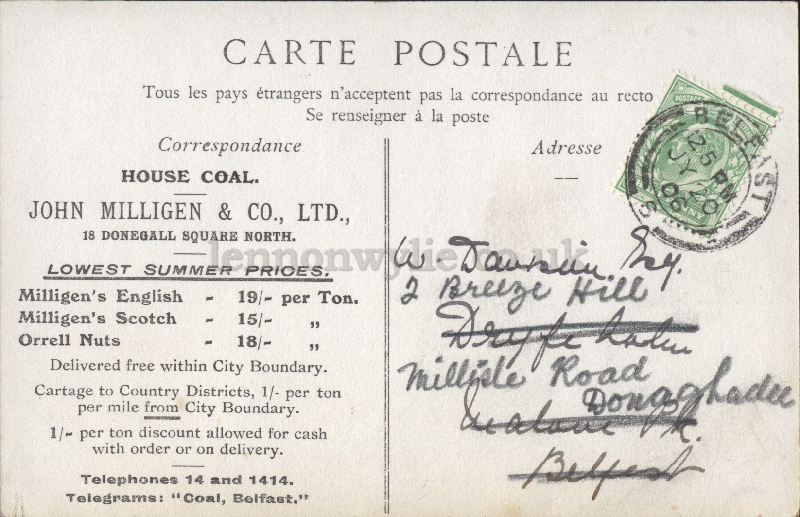 CARTE POSTALE
Tous les pays étrangers n'acceptent pas la correspondance au recto
Se renseigner à la poste
Correspondance
HOUSE COAL.
JOHN MILLIGEN & CO., LTD.,
18 DONEGALL SQUARE NORTH.
LOWEST SUMMER PRICES.
Milligen's English - 19/- per Ton.
Milligen's Scotch - 15/- „
Orrell Nuts - 18/- „
Delivered free within City Boundary.
Cartage to Country Districts, 1/- per ton
per mile from City Boundary.
1/- per ton discount allowed for cash
with order or on delivery.
Telephones 14 and 1414.
Telegrams: "Coal, Belfast."
Adresse
BELFAST
25 PM
JY 20
06
lennonwylie.co.uk
W. Dawson Esq.
2 Breeze Hill
Millisle Road
Donaghadee
Belfast